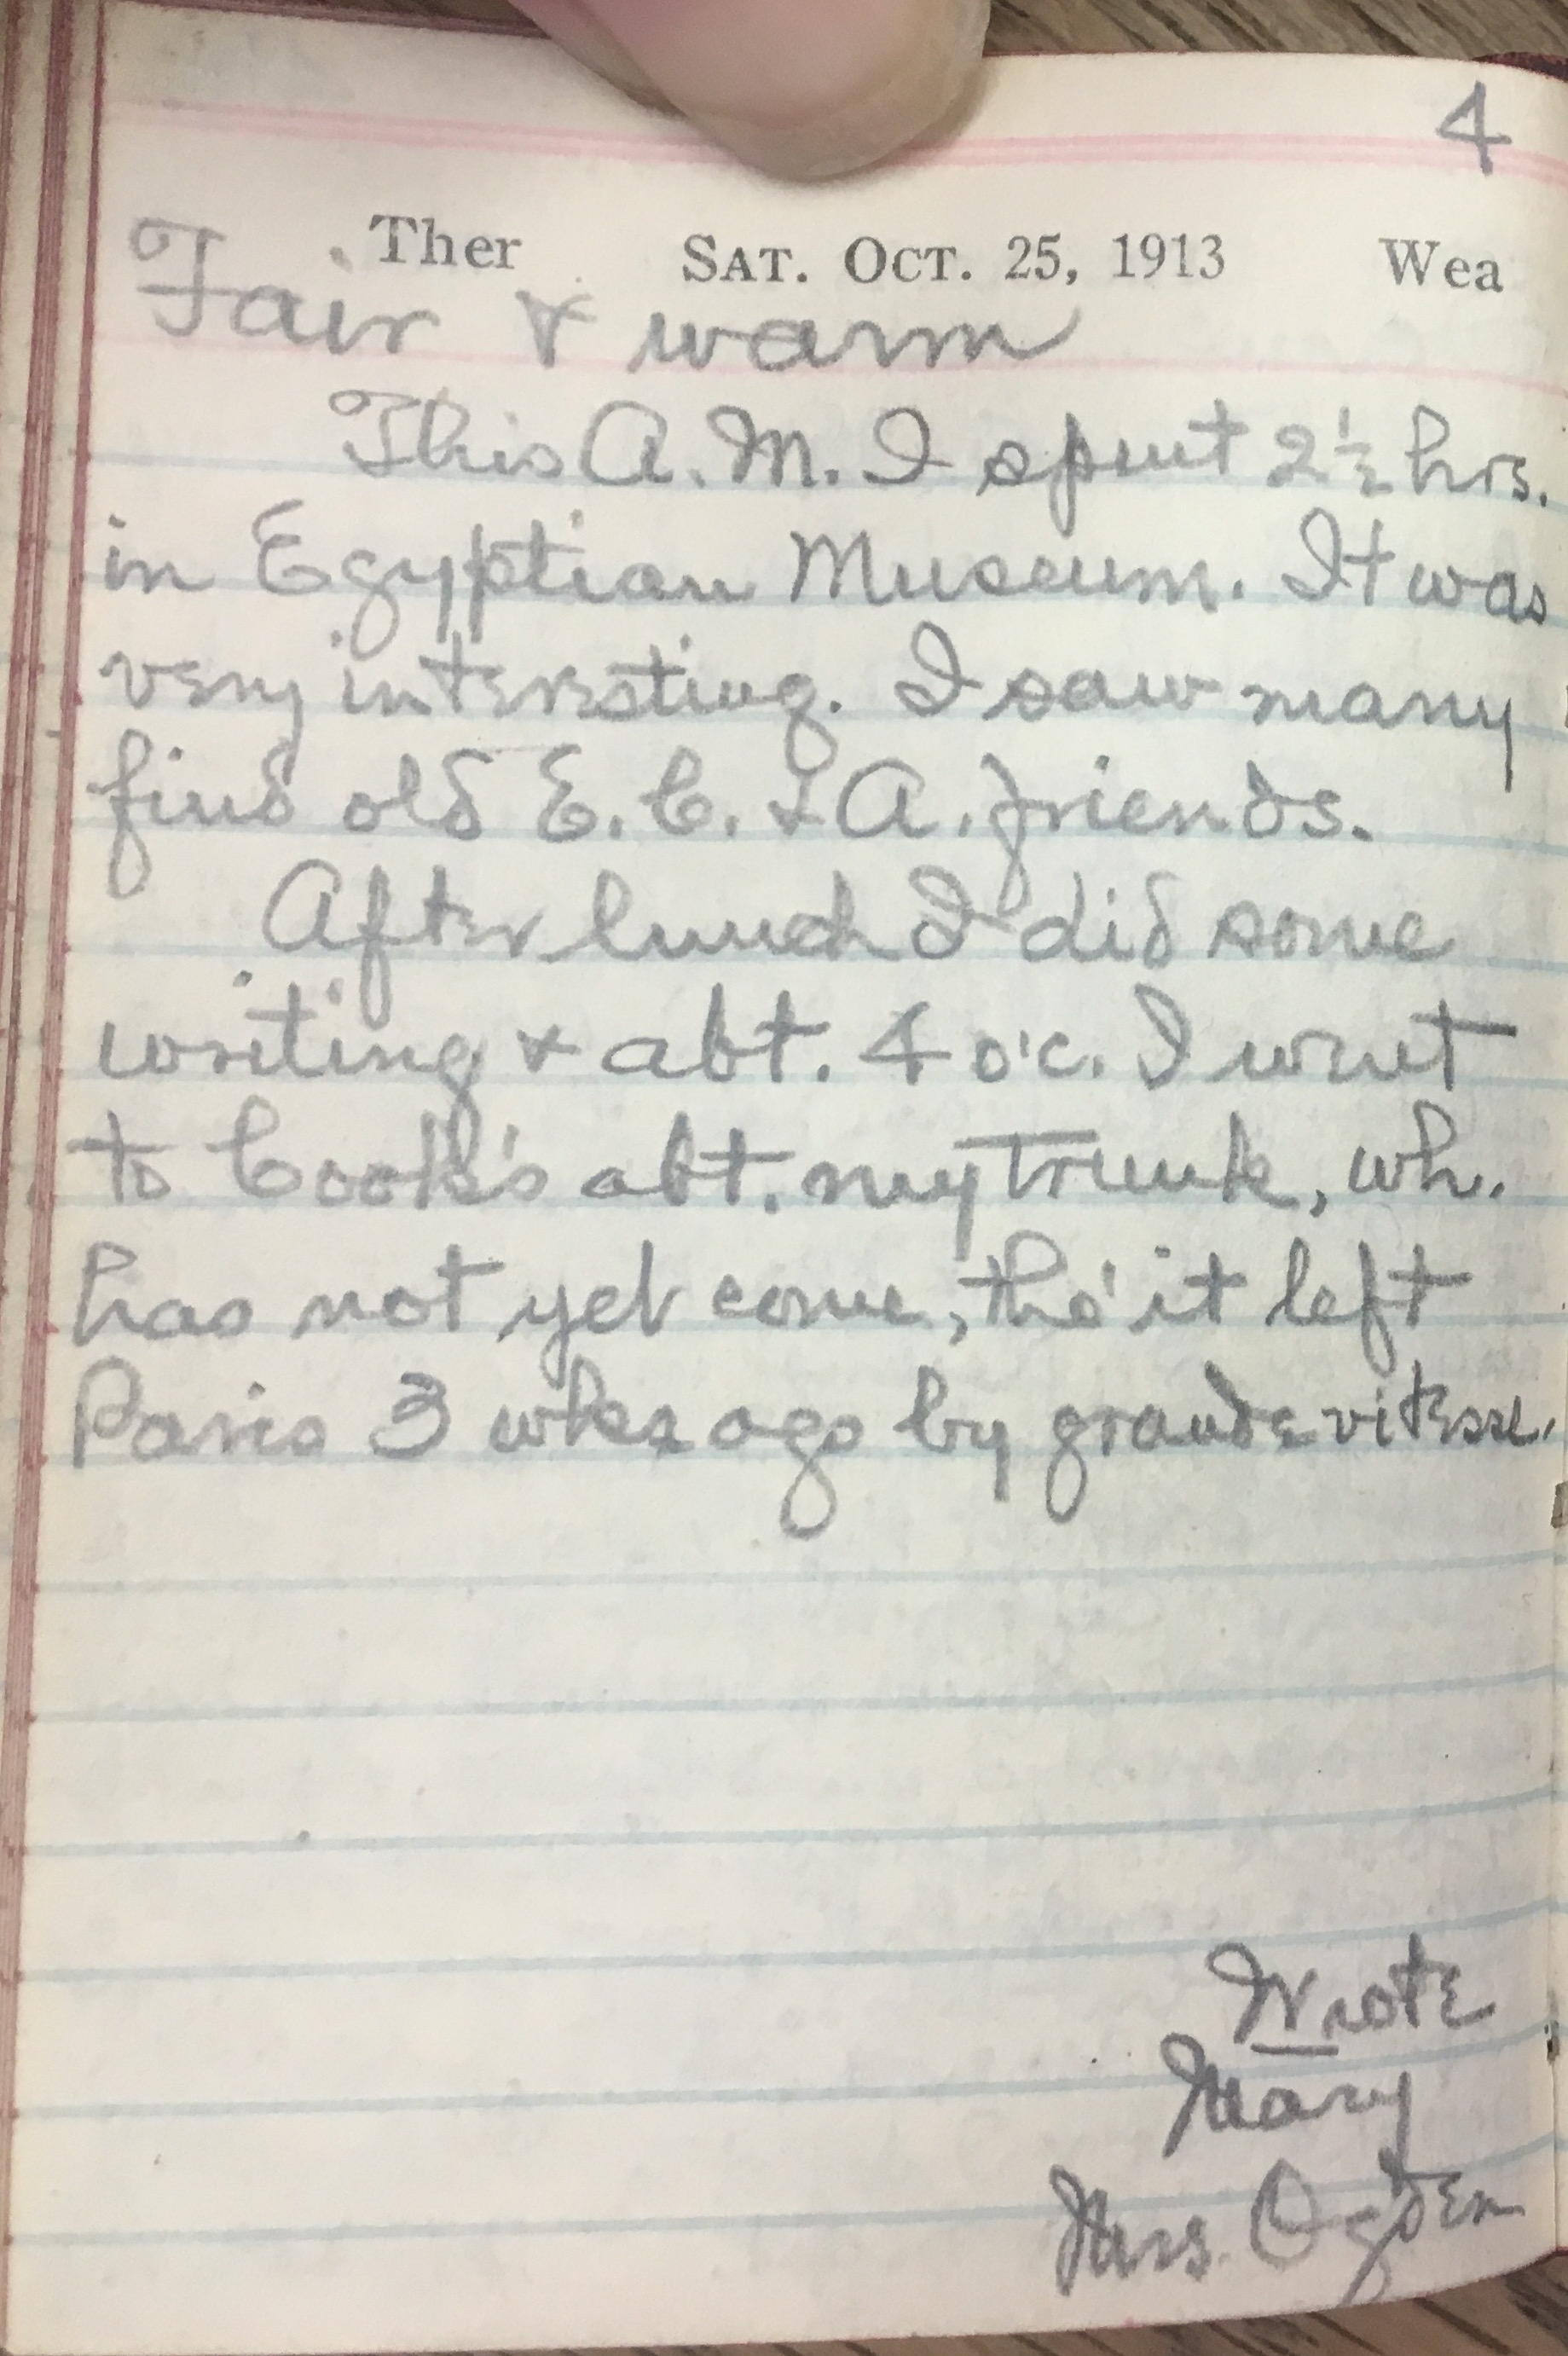 4
Ther SAT. OCT. 25, 1913 Wea
Fair & warm
This A.M. I spent 2½ hrs.
in Egyptian Museum. It was
very interesting. I saw many
find old E. C. & A. friends.
After lunch I did some
writing & abt. 4 o'c. I went
to Cook's abt. my trunk, wh.
has not yet come, tho' it left
Paris 3 wks ago by grande vitesse.
Wrote
Mary
Mrs. Ogden